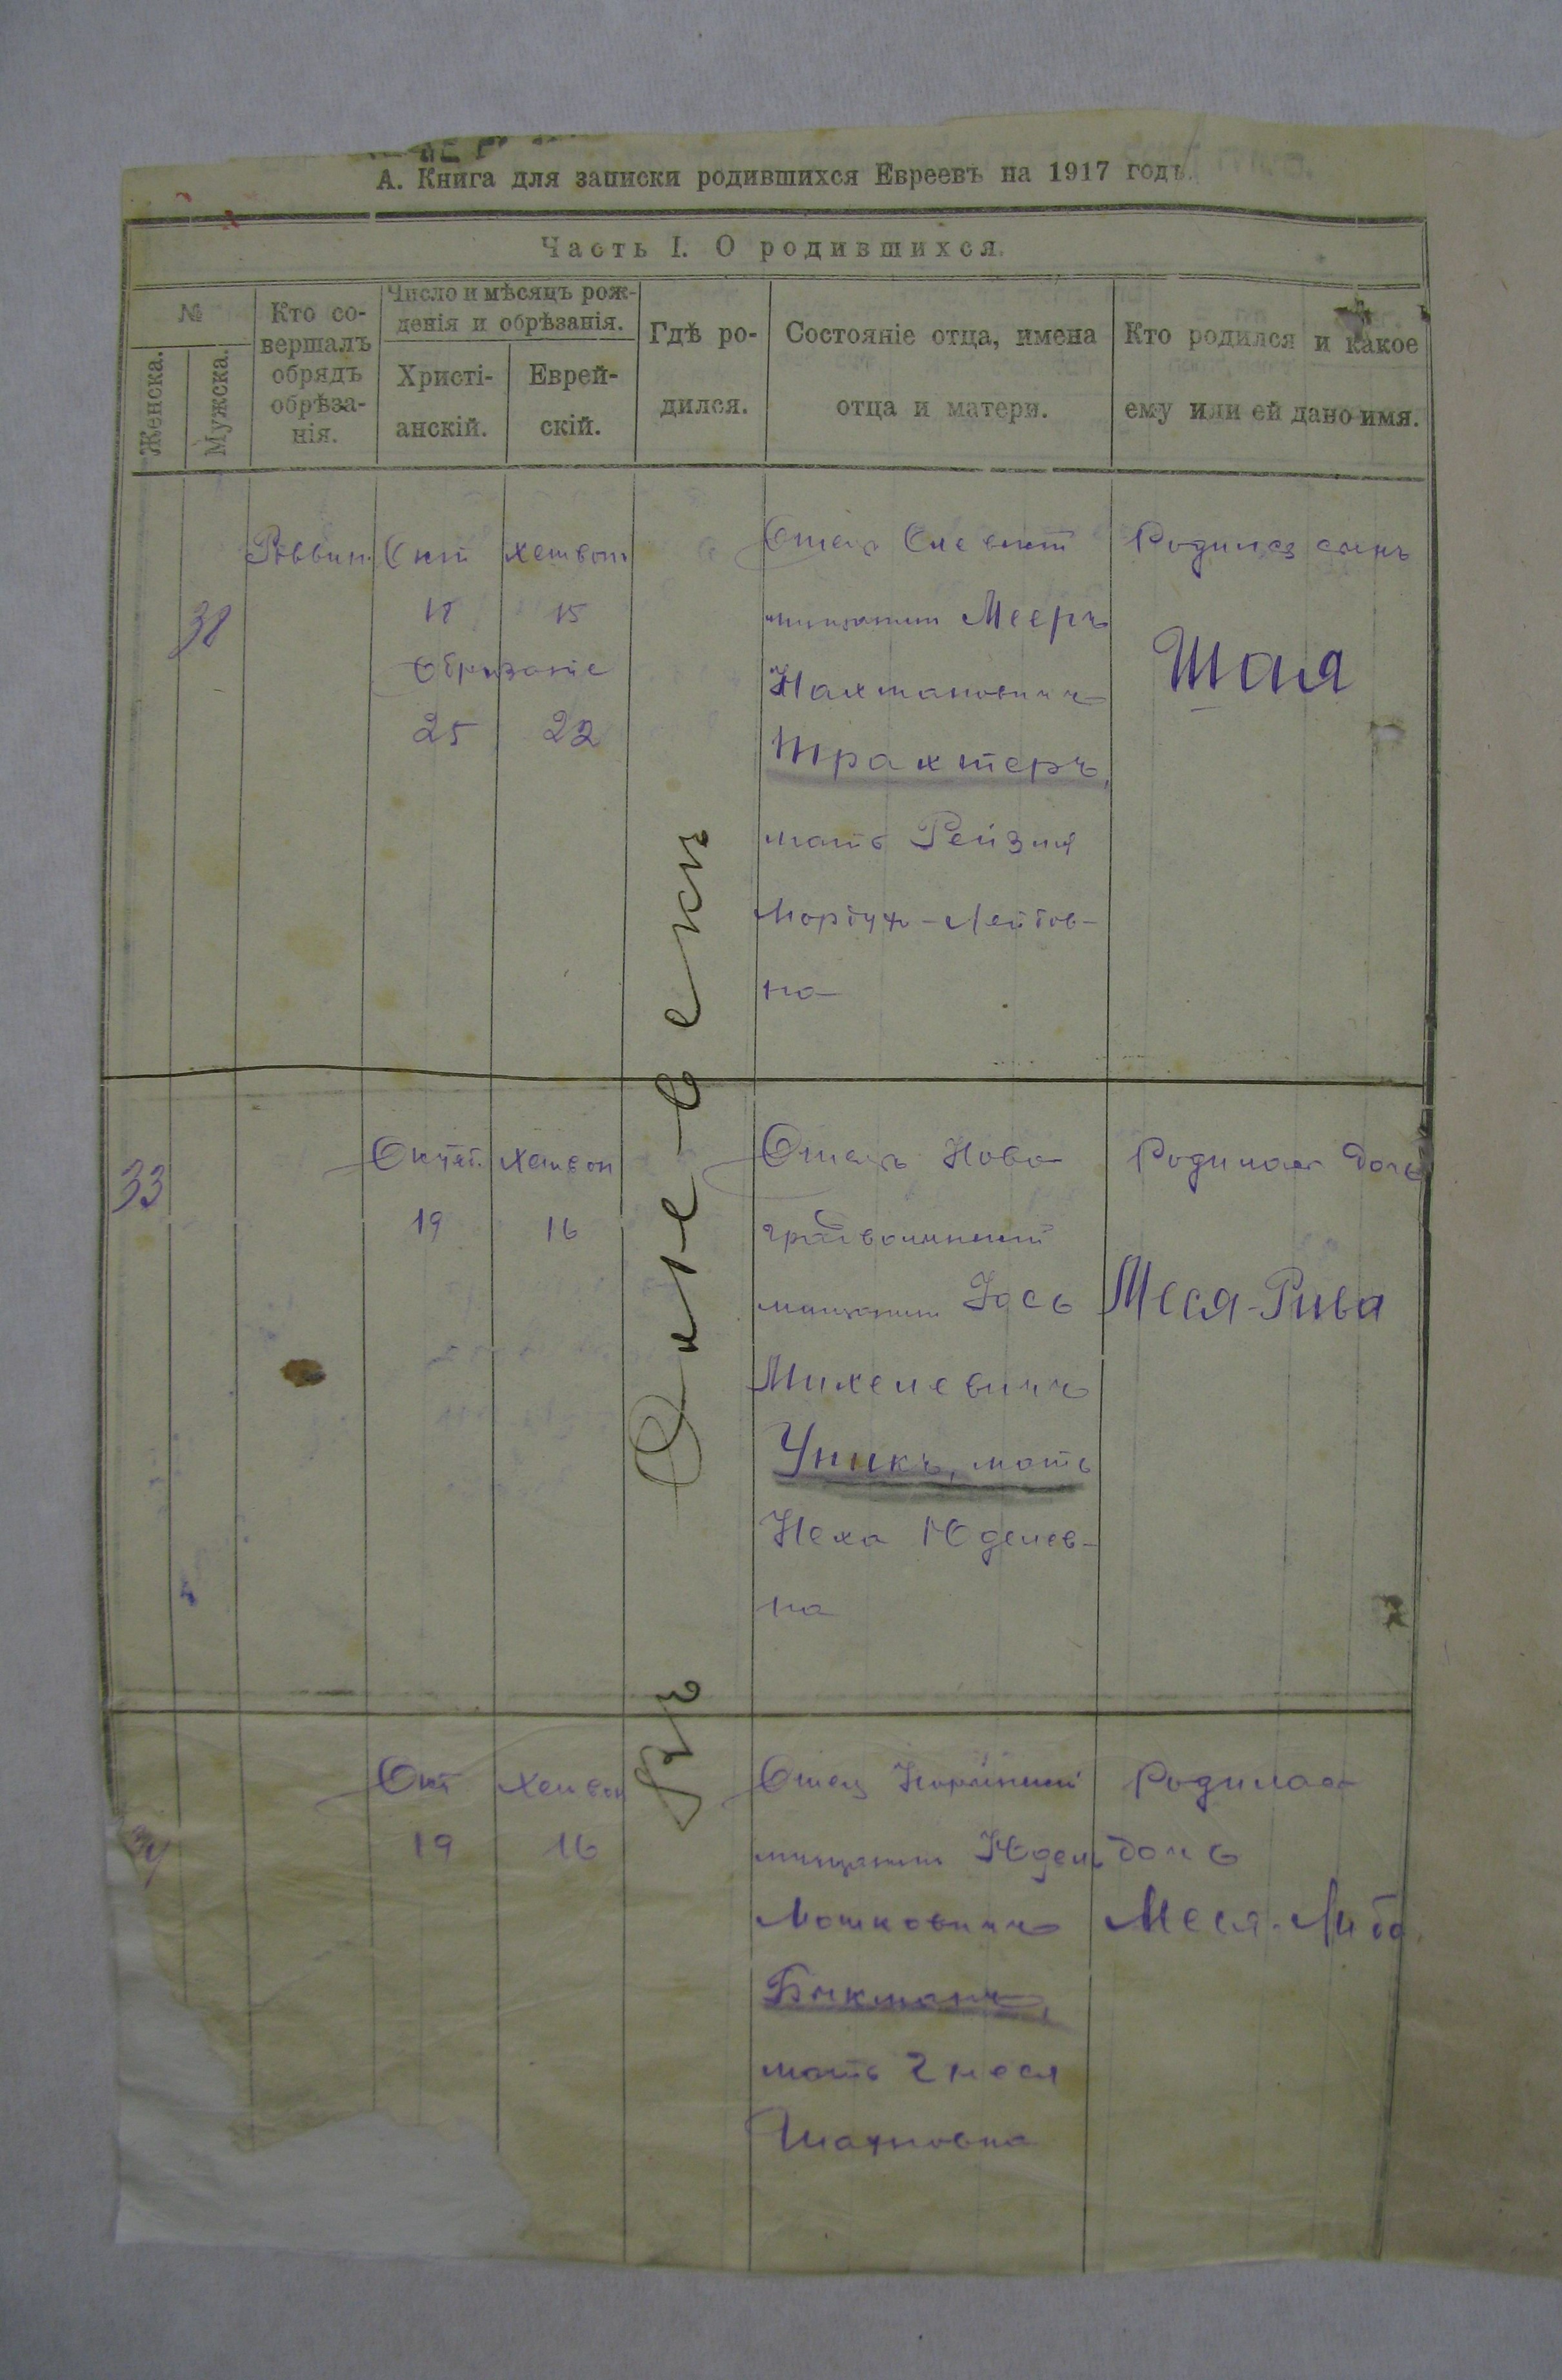 А. Книга для записки родившихся Евреевъ на 1917 годъ.
Часть I. О родившихся.
№
Женска.
Мужска.
Кто со-
вершалъ
обрядъ
обрѣза-
нія.
Число и мѣсяцъ рож-
денія и обрѣзанія.
Христі-
анскій.
Еврей-
скій.
Гдѣ ро-
дился.
Состояніе отца, имена
отца и матери.
Кто родился и какое
ему или ей дано имя.
38
Раввин.
Окт
Хешвон
15
Обризаніе
25
22
Въ Олевскъ
Отецъ
мищанин Мееръ
Нахмановичъ
Трахтеръ,
мать Рейзля
Мордух-Лейбов-
на
Родился сынъ
Шая
33
Октяб.
Хешвон
19
16
Отецъ Ново
градволинский
мищанин Йось
Михелевичъ
Уникъ, мать
Неха Юделев-
на
Родилась дочь
Меся-Рива
34
Окт
Хешвон
19
16
Отец
мищанин Юдель
Мошковичъ
Бикманъ,
мать Гнеся
Родилась
дочь
Меся-Либа